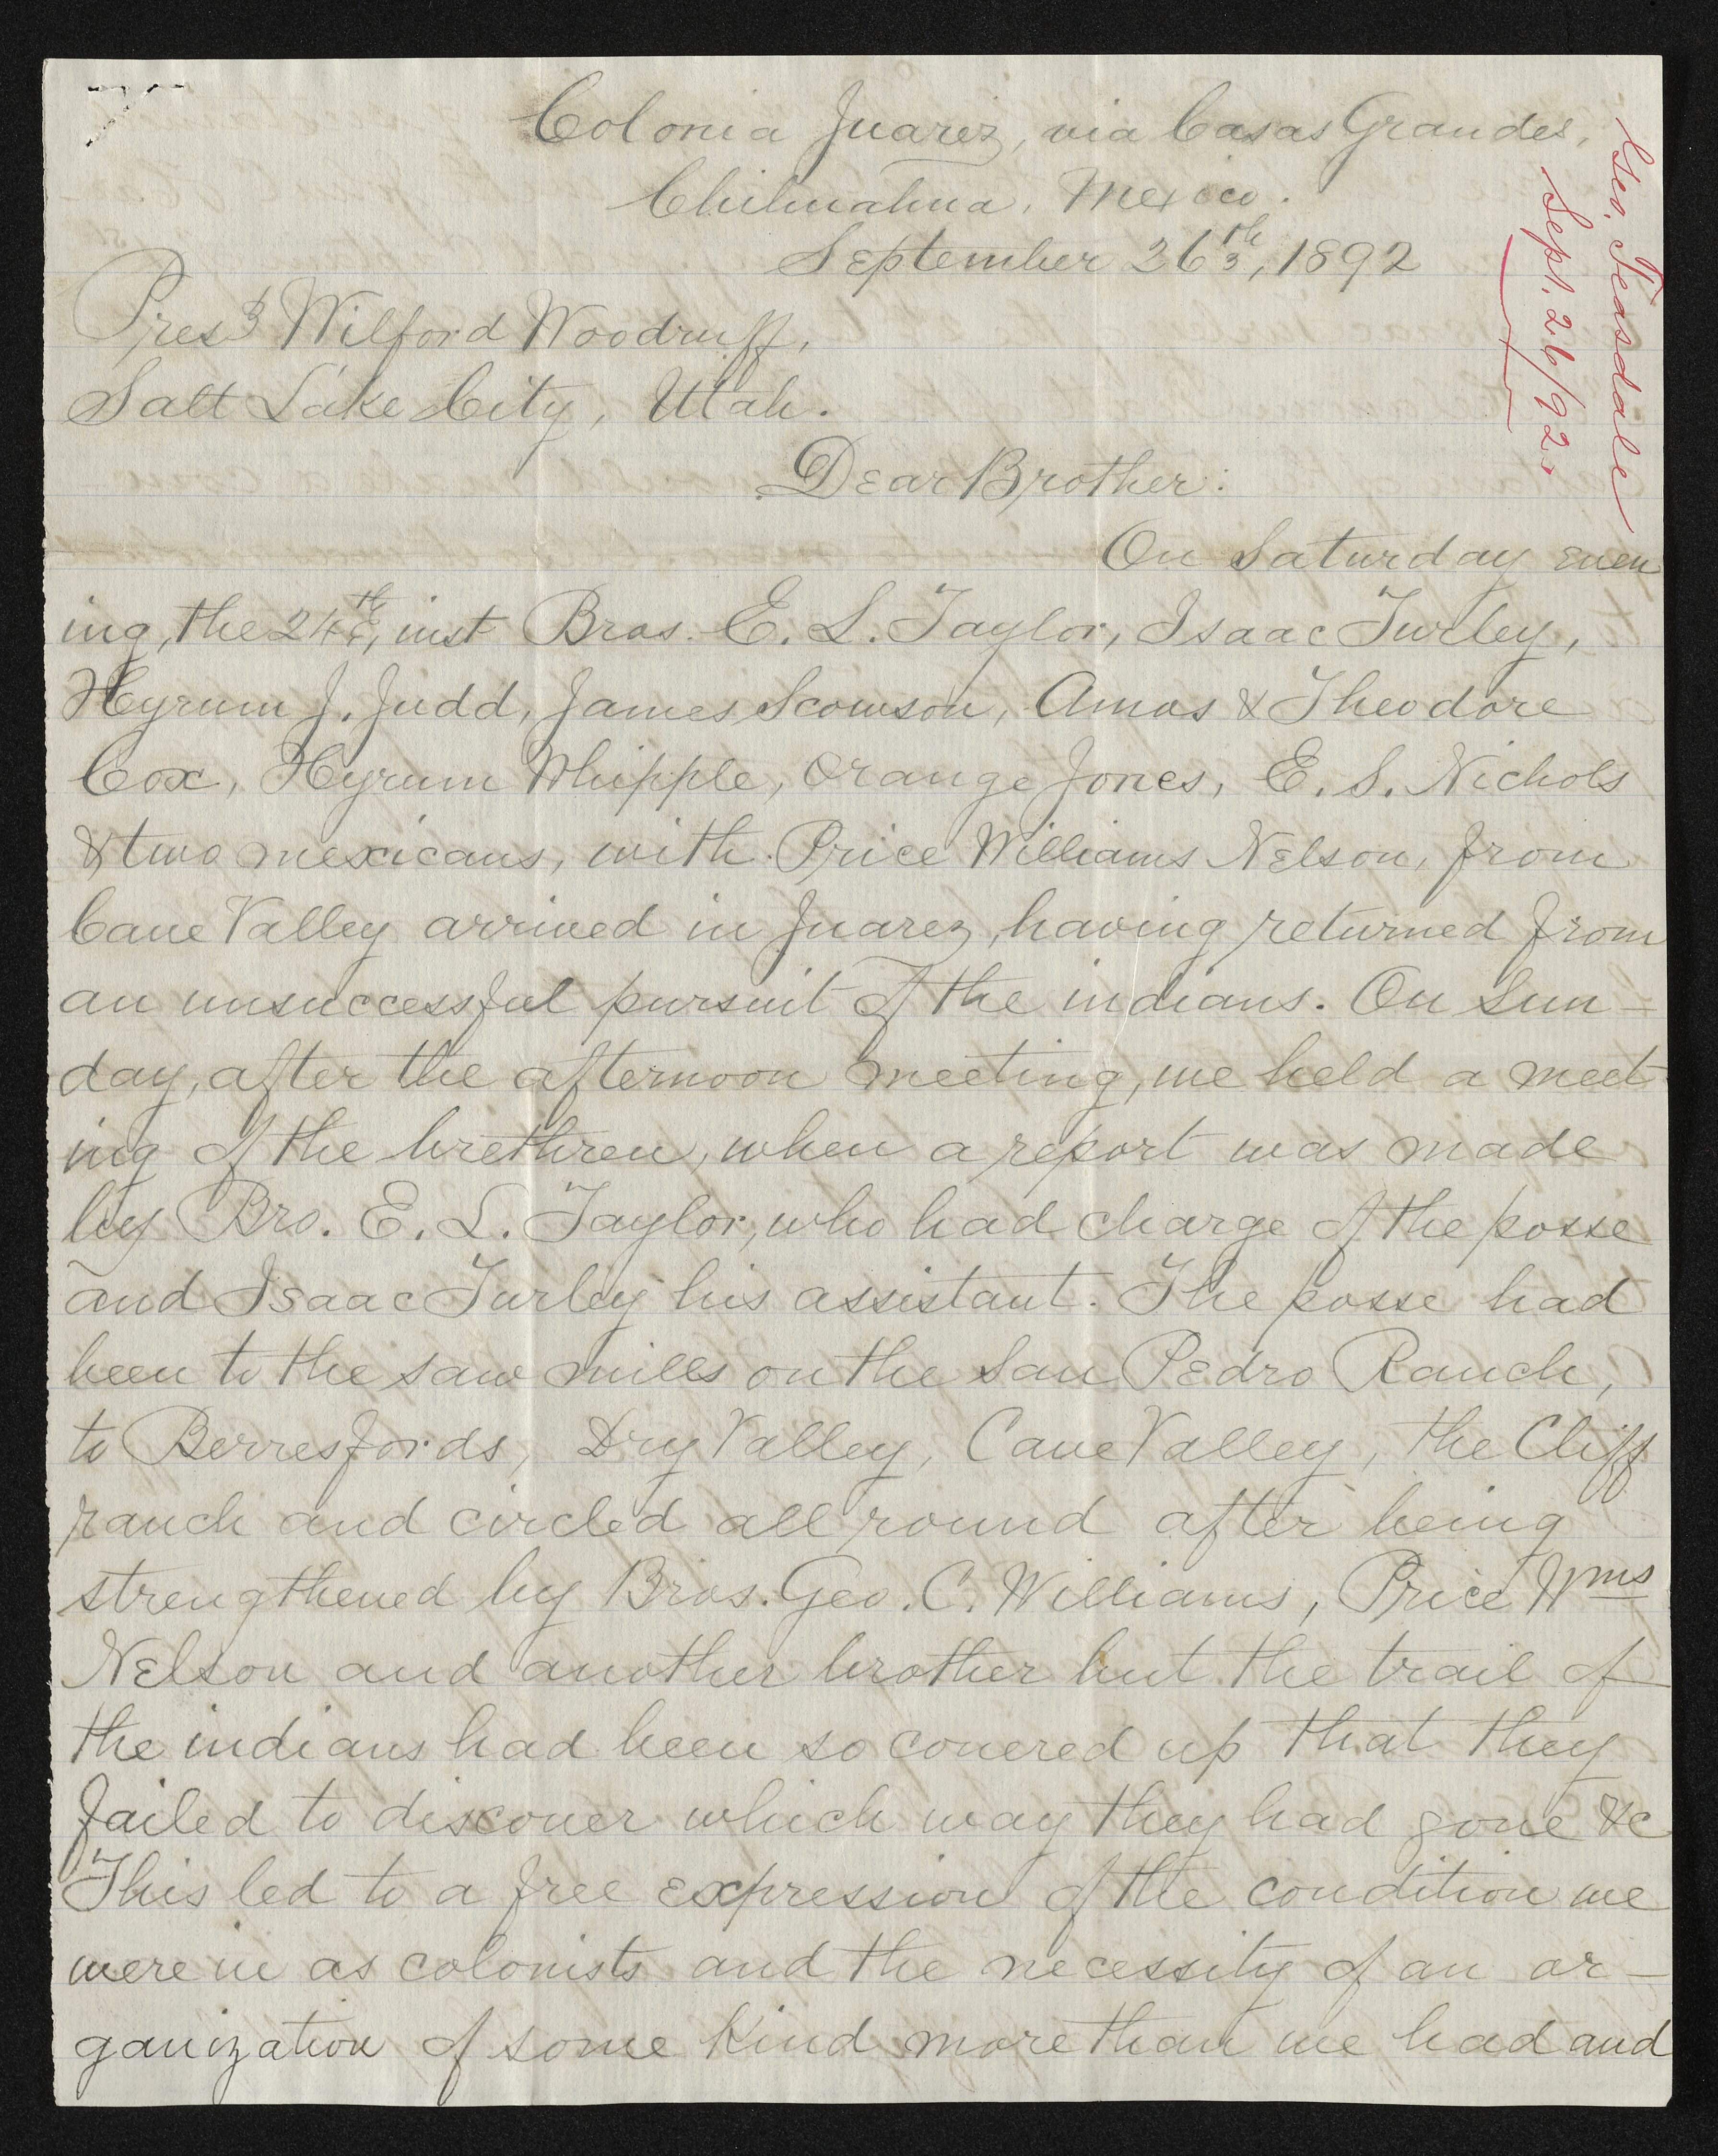 Colonia Juarez, via Casas Grandes,
Chihuahua, Mexico.
September 26th, 1892
Geo. Teasdale
Sept. 26/92.
Prest Wilford Woodruff,
Salt Lake City, Utah.
Dear Brother:
On Saturday even
ing, the 24th, inst Bros. E. L. Taylor, Isaac Turley,
Hyrum J. Judd, James Scowson, Amos & Theodore
Cox, Hyrum Whipple, Orange Jones, E. S. Nichols
& two mexicans, with Price Williams Nelson, from
Cave Valley arrived in Juarez, having returned from
an unsuccessful pursuit of the indians. On Sun-
day, after the afternoon meeting, we held a meet
ing of the brethren, when a report was made
by Bro. E. L. Taylor, who had charge of the posse
and Isaac Turley his assistant. The posse had
been to the saw mills on the San Pedro Ranch,
to Berresfords, Dry Valley, Cave Valley, the Cliff
ranch and circled all round after being
strengthened by Bros. Geo. C. Williams, Price Wms
Nelson and another brother but the trail of
the indians had been so covered up that they
failed to discover which way they had gone &c
This led to a free expression of the condition we
were in as colonists and the necessity of an or-
ganization of some kind more than we had and